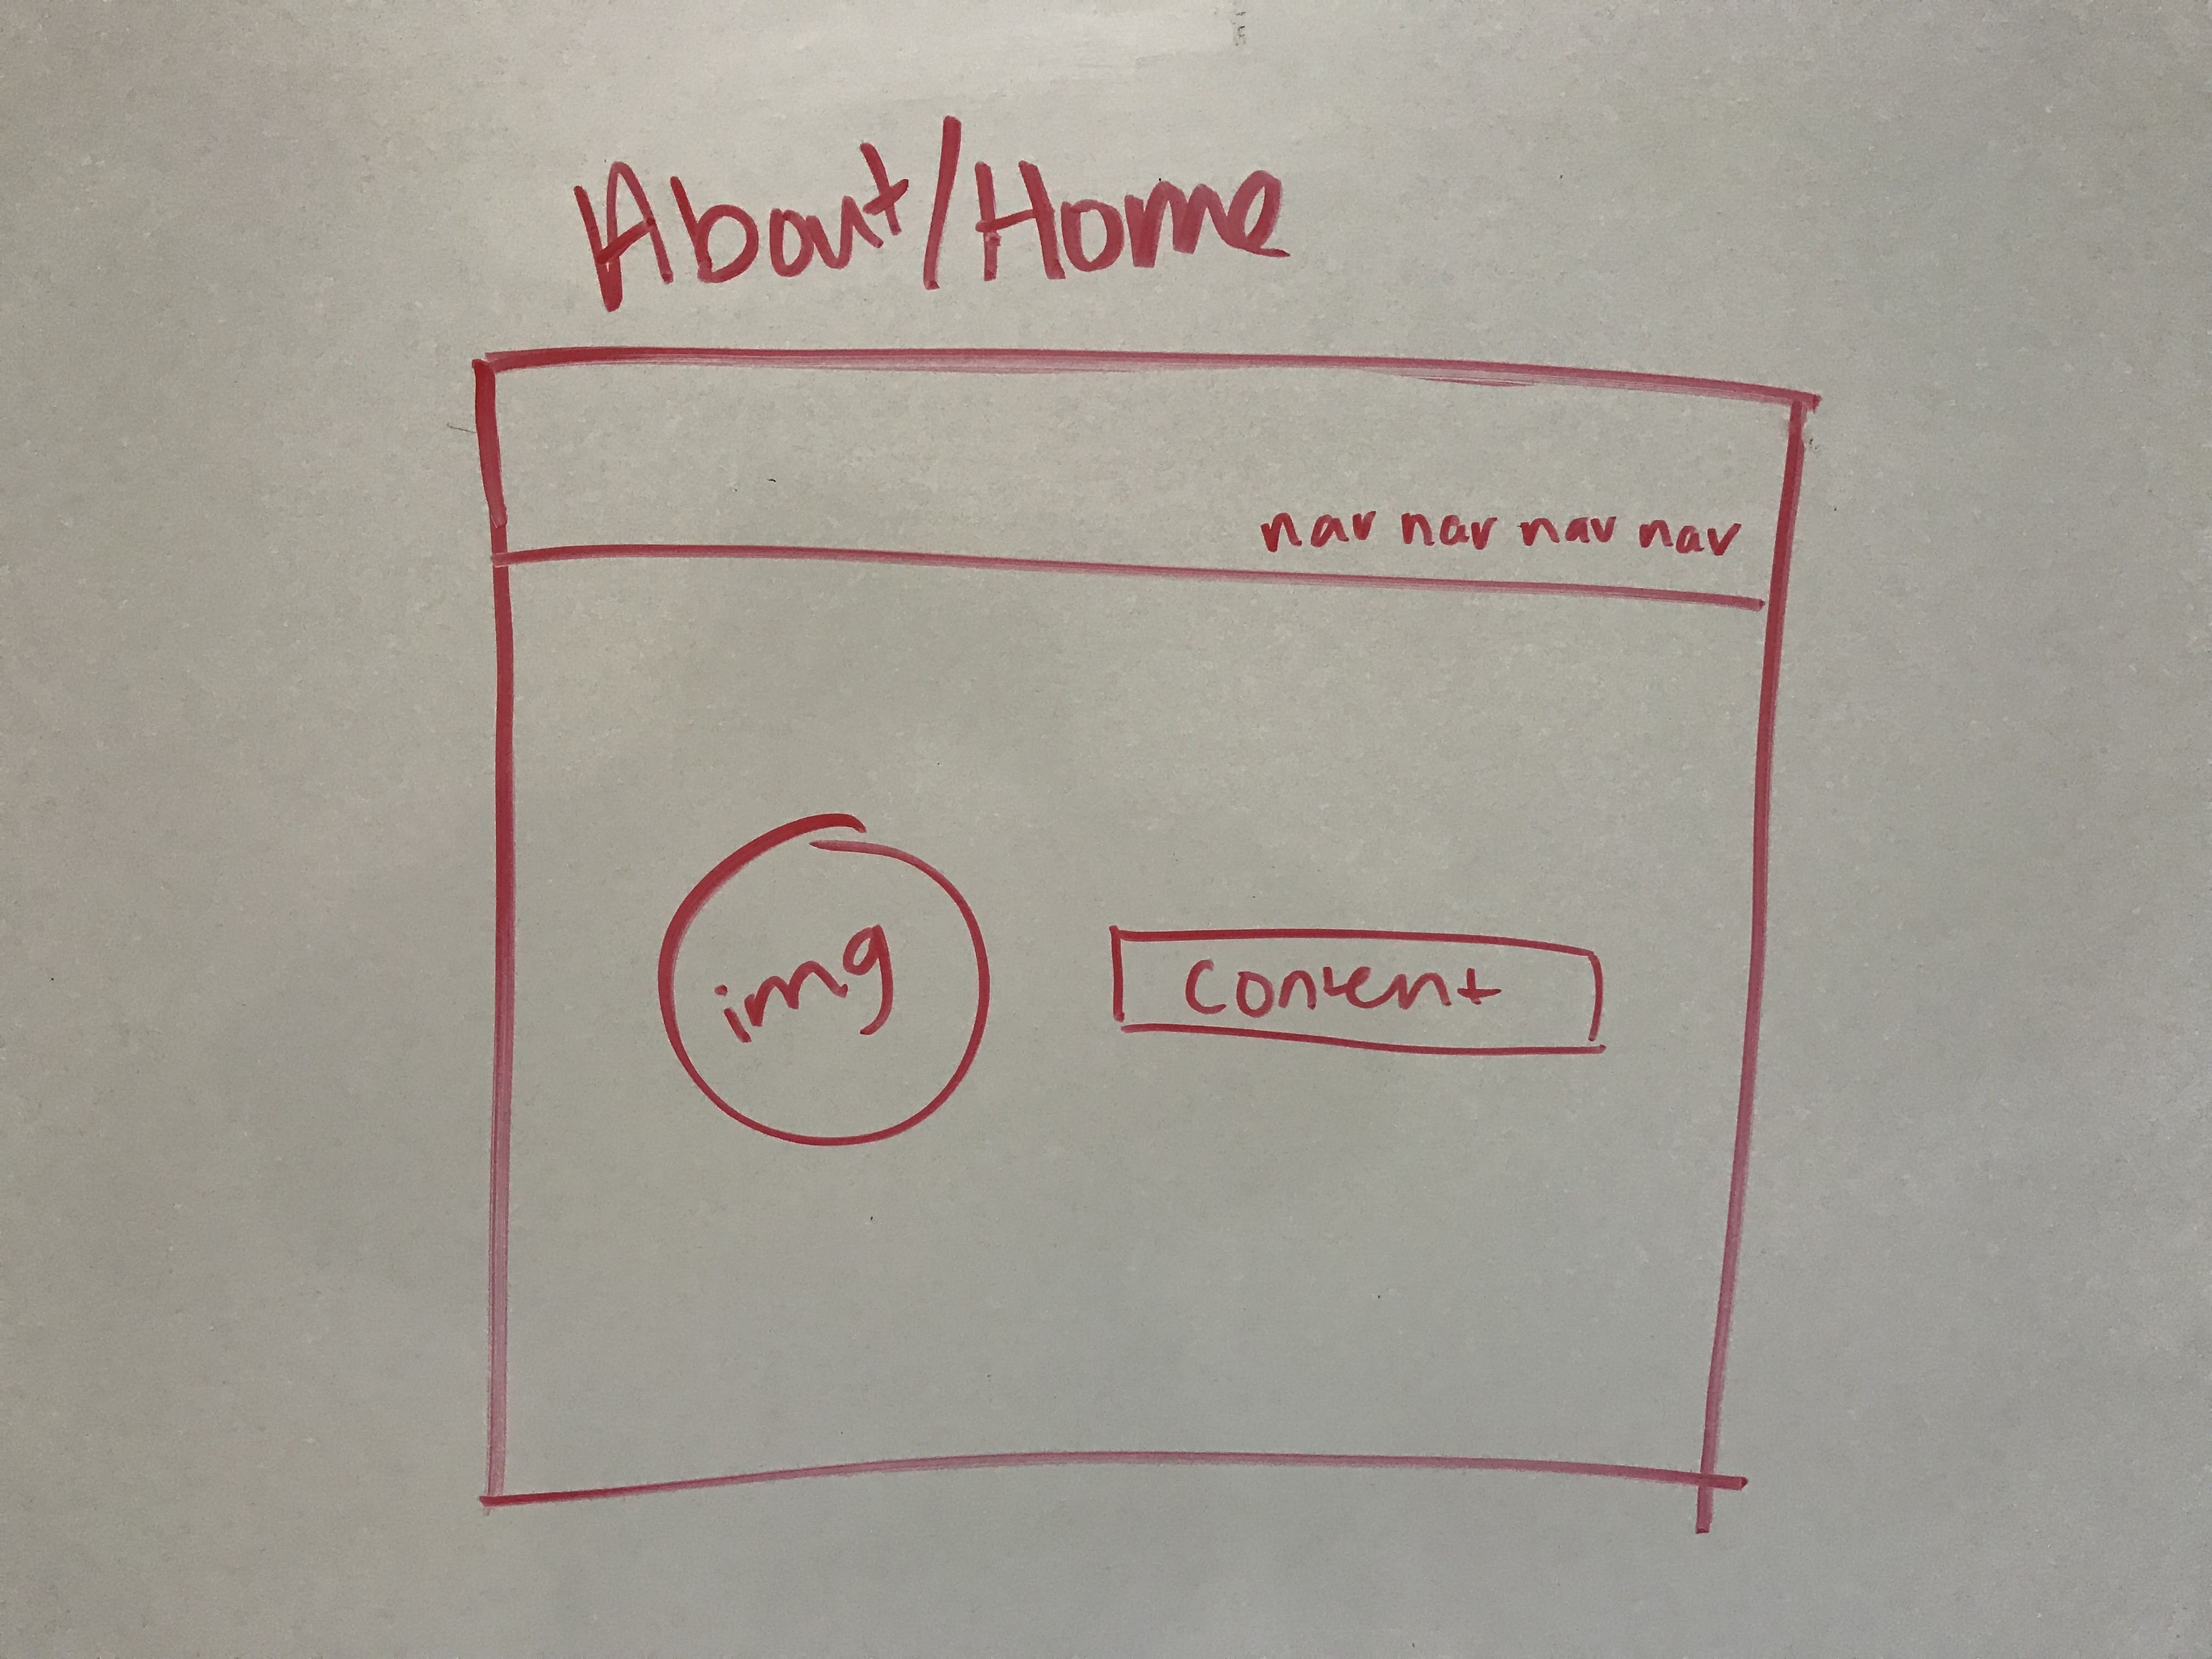 About/Home
nav nav nav nav
img
Content